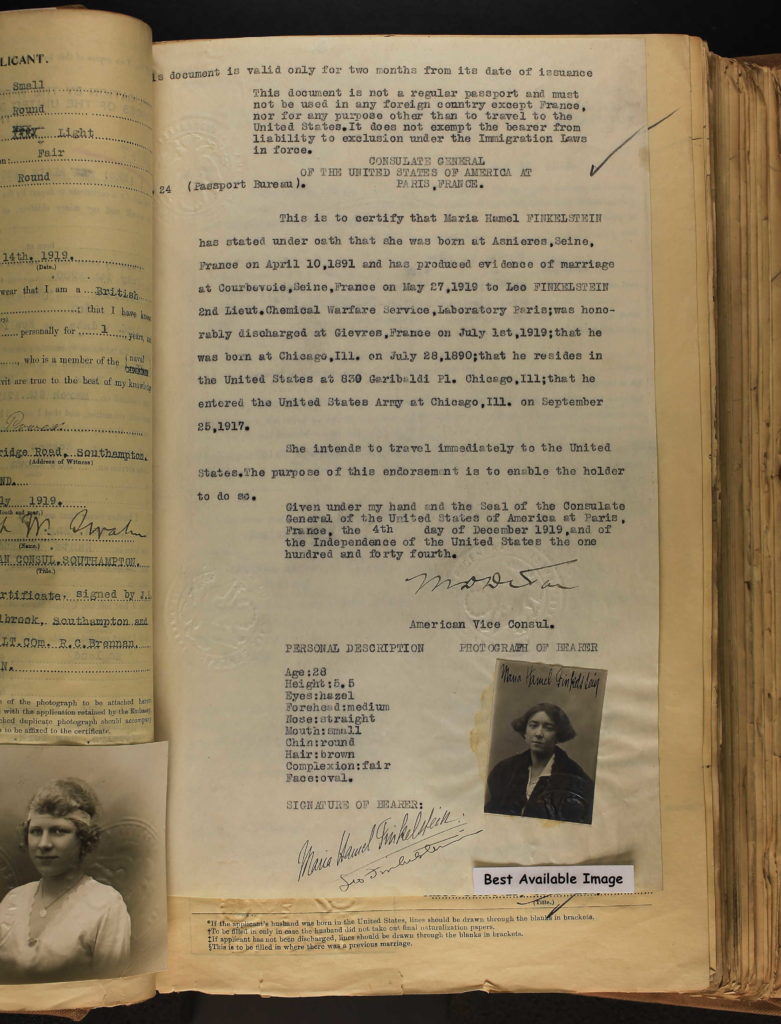 LICANT.
Small
Round
Light
Fair
Round
14th. 1919.
(Date.)
wear that I am a British
; that I have
personally for 1 years,
, who is a member of the (naval
vit are true to the best of my
ridge Road, Southampton,
(Address of Witness)
ND.
ly 1919.
(Month and year.)
(Name.)
AN CONSUL, SOUTHAMPTON.
(Title.)
rtificate, signed by J.
lbrook, Southampton and
LT.COm. R.C.Brennan.
N.
n of the photograph to be attached
with the application retained by the
ked duplicate photograph should accompany
to be affixed to the certificate.
is document is valid only for two months from its date of issuance
This document is not a regular passport and must
not be used in any foreign country except France,
nor for any purpose other than to travel to the
United States.It does not exempt the bearer from
liability to exclusion under the Immigration Laws
in force.
CONSULATE GENERAL
OF THE UNITED STATES OF AMERICA AT
24 (Passport Bureau). PARIS,FRANCE.
This is to certify that Maria Hamel FINKELSTEIN
has stated under oath that she was born at Asnieres,Seine,
France on April 10,1891 and has produced evidence of marriage
at Courbevoie,Seine,France on May 27,1919 to Leo FINKELSTEIN
2nd Lieut.Chemical Warfare Service,Laboratory Paris;was hono-
rably discharged at Gievres,France on July 1st,1919;that he
was born at Chicago,Ill. on July 28,1890;that he resides in
the United States at 830 Garibaldi Pl. Chicago,Ill;that he
entered the United States Army at Chicago,Ill. on September
25,1917.
She intends to travel immediately to the United
States.The purpose of this endorsement is to enable the holder
to do so.
Given under my hand and the Seal of the Consulate
General of the United States of America at Paris,
France, the 4th day of December 1919,and of
the Independence of the United States the one
hundred and forty fourth.
American Vice Consul.
PERSONAL DESCRIPTION PHOTOGRAPH OF BEARER
Age:28
Height:5.5
Eyes:hazel
Forehead:medium
Nose:straight
Mouth:small
Chin:round
Hair:brown
Complexion:fair
Face:oval.
Maria Hamel Finkelstein
SIGNATURE OF BEARER:
Maria Hamel Finkelstein
Leo Finkelstein
Best Available Image
(Title.)
*If the applicant's husband was born in the United States, lines should be drawn through the blanks in brackets.
†To be filled in only in case the husband did not take out final naturalization papers.
‡If applicant has not been discharged, lines should be drawn through the blanks in brackets.
§This is to be filled in where there was a previous marriage.